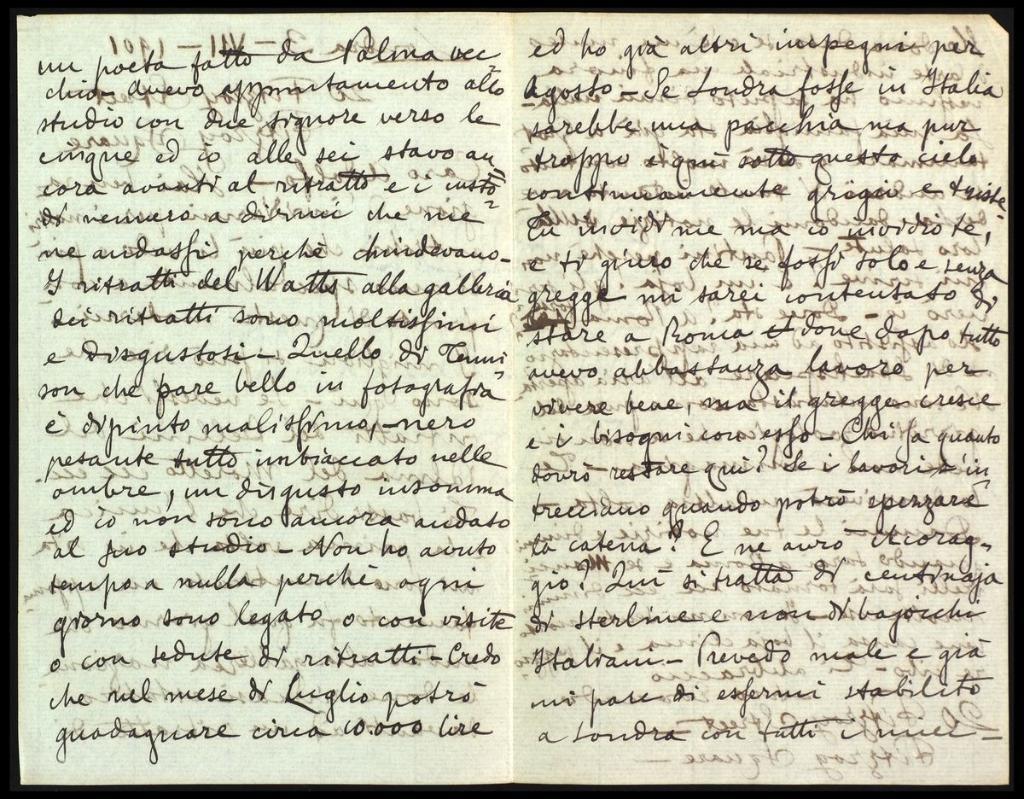 un poeta fatto da Palma vec-
chio - avevo appuntamento allo
studio con due signore verso le
cinque ed io alle sei stavo an
cora avanti al ritratto e i custo=
di vennero a dirmi che me
ne andassi perchè chiudevano -
I ritratti del Watts alla galleria
dei ritratti sono moltissimi
e disgustosi - Quello di Tenni
son che pare bello in fotografia
è dipinto malissimo, - nero
pesante tutto imbiaccato nelle
ombre, un disgusto insomma
ed io non sono ancora andato
al suo studio - Non ho avuto
tempo a nulla perchè ogni
giorno sono legato o con visite
o con sedute di ritratti - Credo
che nel mese di Luglio potrò
guadagnare circa 10.000 lire
ed ho già altri impegni per
Agosto - Se Londra fosse in Italia
sarebbe una pacchia ma pur
troppo è qui sotto questo cielo
continuamente grigio e triste -
Tu invidi me ma io invidio te,
e ti giuro che se fossi solo e senza
gregge mi sarei contentato di
stare a Roma dove dopo tutto
avevo abbastanza lavoro per
vivere bene, ma il gregge cresce
e i bisogni con esso - Chi sa quanto
dovrò restare qui? Se i lavori s'in
trecciano quando potrò spezzare
la catena? E ne avrò il corag=
gio? Qui si tratta di centinaja
di sterline e non di bajocchi
Italiani - Prevedo male e già
mi pare di essermi stabilito
a Londra con tutti i miei -